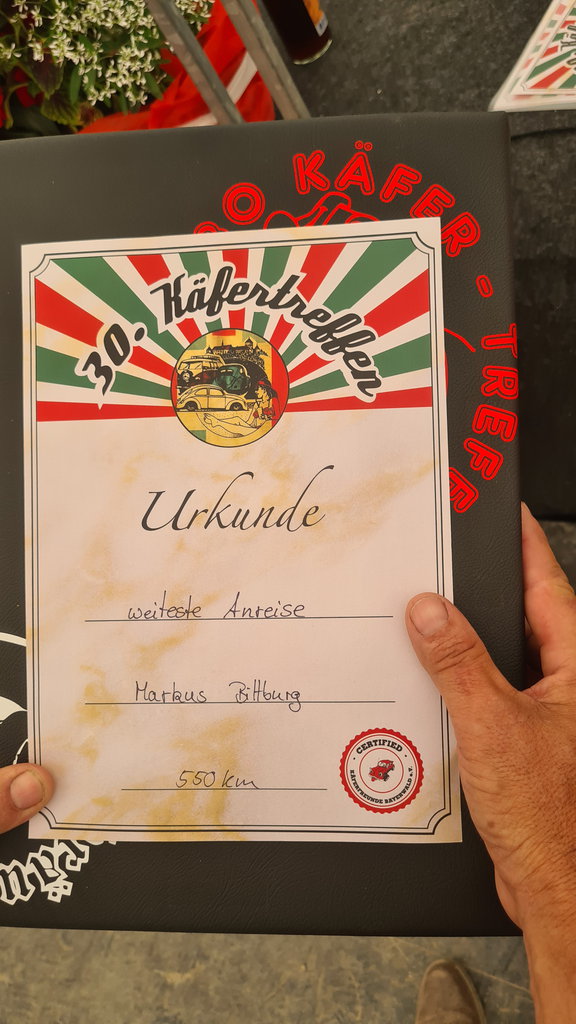 O KÄFER - TREFF
30. Käfertreffen
Urkunde
weiteste Anreise
Markus Bittburg
550 km
CERTIFIED
KÄFERFREUNDE BAYERWALD e.V.